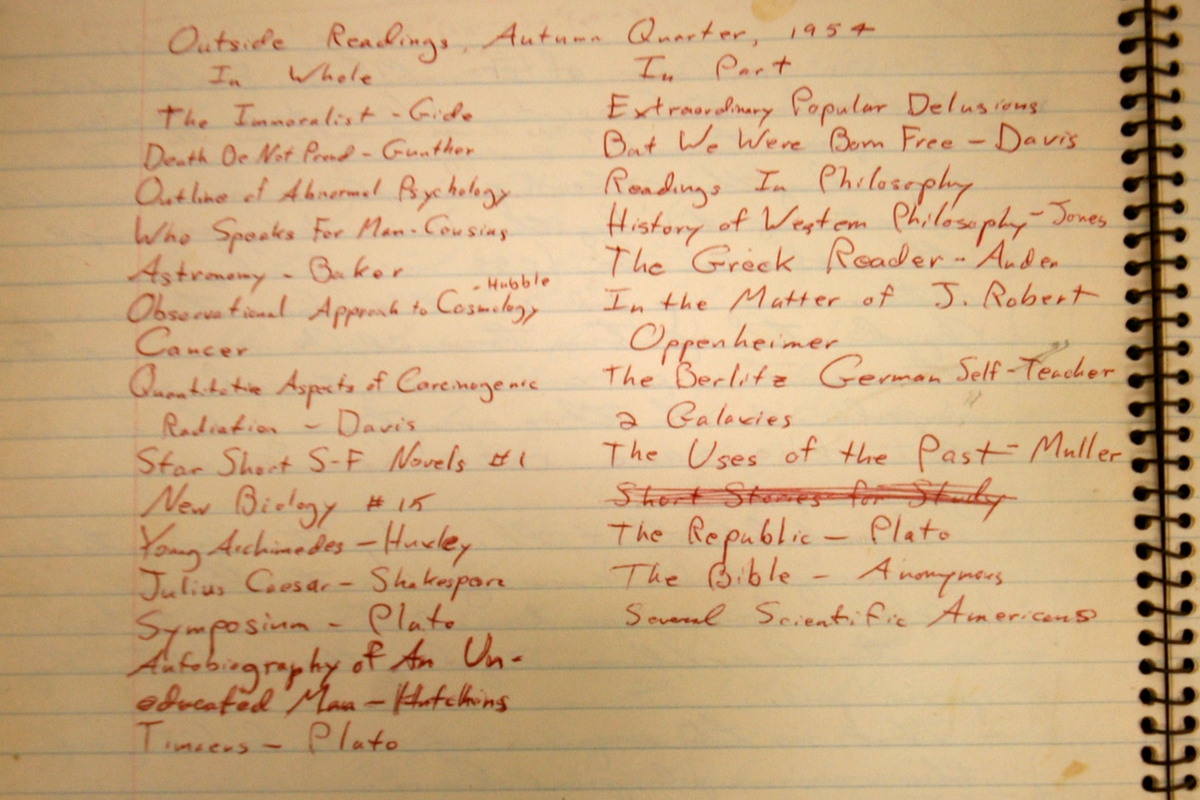 Outside Readings, Autumn Quarter, 1954
In Whole
The Immoralist - Gide
Death Be Not Proud - Gunther
Outline of Abnormal Psychology
Who Speaks For Man - Cousins
Astronomy - Baker
- Hubble
Observational Approach to Cosmology
Cancer
Quantitative Aspects of Carcinogenic
Radiation - Davis
Star Short S-F Novels #1
New Biology #15
Young Archimedes - Huxley
Julius Caesar - Shakespare
Symposium - Plato
Autobiography of An Un-
educated Man - Hutchins
Timaeus - Plato
In Part
Extraordinary Popular Delusions
But We Were Born Free - Davis
Readings In Philosophy
History of Western Philosophy - Jones
The Greek Reader - Auden
In the Matter of J. Robert
Oppenheimer
The Berlitz German Self-Teacher
2 Galaxies
The Uses of the Past - Muller
Short Stories for Study
The Republic - Plato
The Bible - Anonymous
Several Scientific Americans